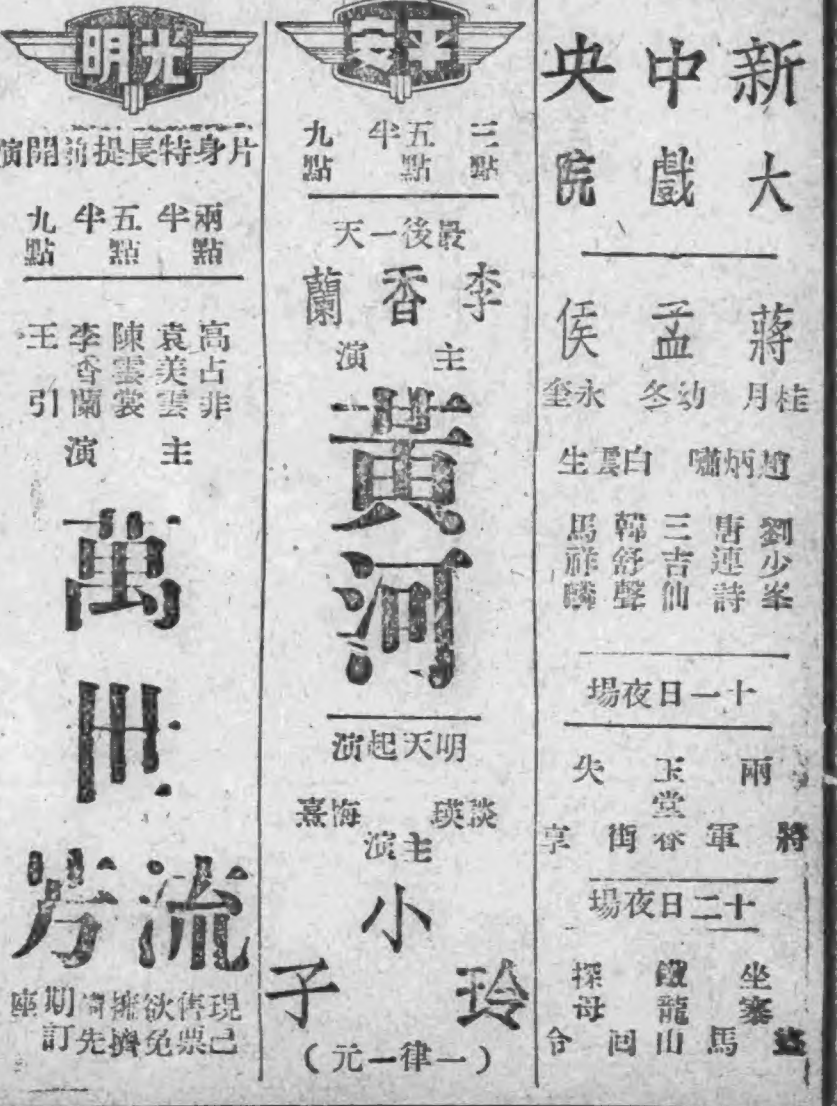 新中央
大戲院
蔣桂月
孟幼冬
侯永奎
趙炳嘯 白雲生
劉少峯
唐連詩
三吉仙
韓舒聲
馬祥麟
十一日夜場
兩將軍
玉堂春
失街亭
十二日夜場
坐寨盜馬
鐵龍山
探母回令
平安
三點 五點半 九點
最後一天
李香蘭
主演
黃河
明天起演
談瑛 梅熹
主演
小玲子
(一律一元)
光明
片身特長提前開演
兩點半 五點半 九點
高占非
袁美雲
陳雲裳
李香蘭
王引
主演
萬世流芳
現已售票欲免擁擠請先期訂座